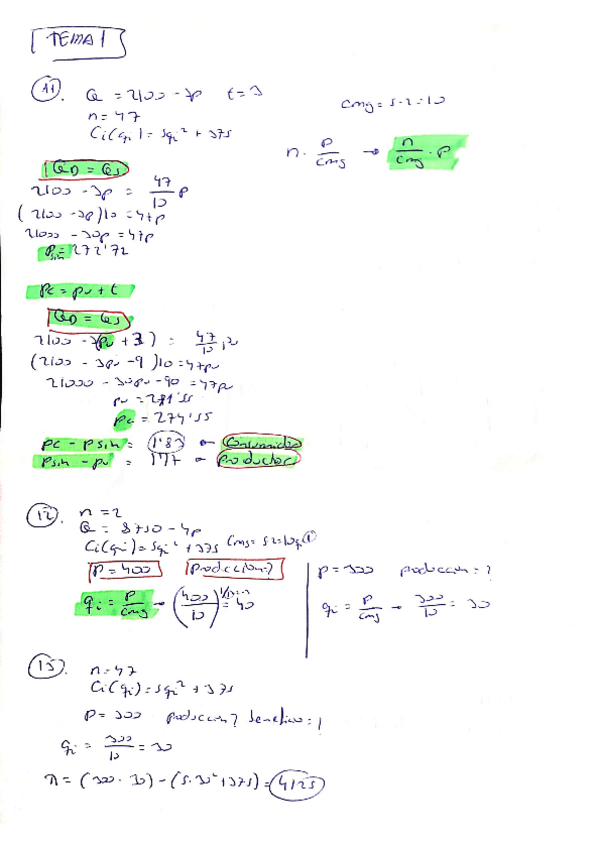 TEMA 1
11. Q = 2100 - 3p t = 3
n = 47
Ci(qi) = 5qi² + 375
Cmg = 5·2 = 10
n · p/Cmg → n/Cmg · p
QD = QS
2100 - 3p = 47/10 p
(2100 - 3p)10 = 47p
21000 - 30p = 47p
Psin = 272'72
Pc = pv + t
QD = QS
2100 - 3(pv + 3) = 47/10 pv
(2100 - 3pv - 9)10 = 47pv
21000 - 30pv - 90 = 47pv
pv = 271'55
pc = 274'55
pc - psin = 1'83 Consumidor
psin - pv = 1'17 Productor
12. n = 2
Q = 8750 - 4p
Ci(qi) = 5qi² + 375 Cmg = 5·2 = 10qi
P = 400 Produccion?
qi = p/Cmg → (400/10) = 40
p = 300 produccion = ?
qi = p/Cmg → 300/10 = 30
13. n = 47
Ci(qi) = 5qi² + 375
P = 300 produccion? beneficio = ?
qi = 300/10 = 30
π = (300 · 30) - (5·30² + 375) = 4125